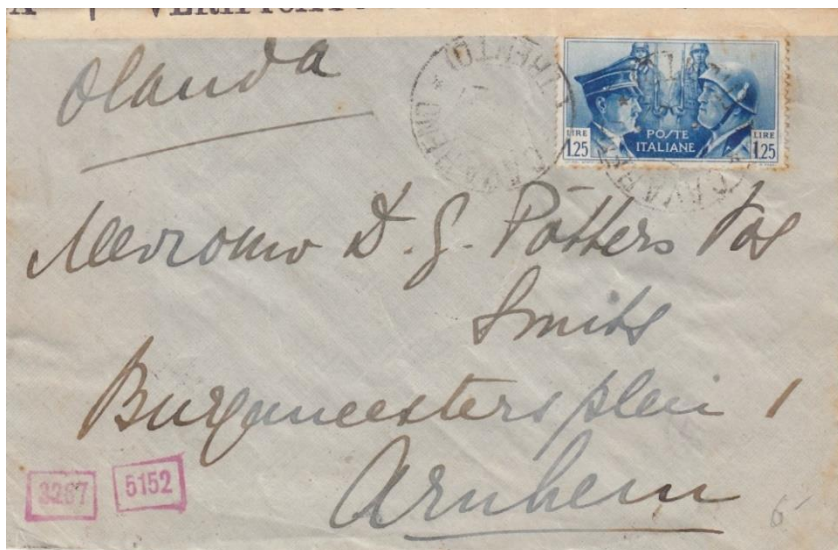 Olanda
LIRE
1.25
POSTE
ITALIANE
LIRE
1.25
CAVARENO (TRENTO)
Mevrouw D. G. Potters Vos
Smits
Burgemeestersplein 1
Arnhem
3267
5152
6-